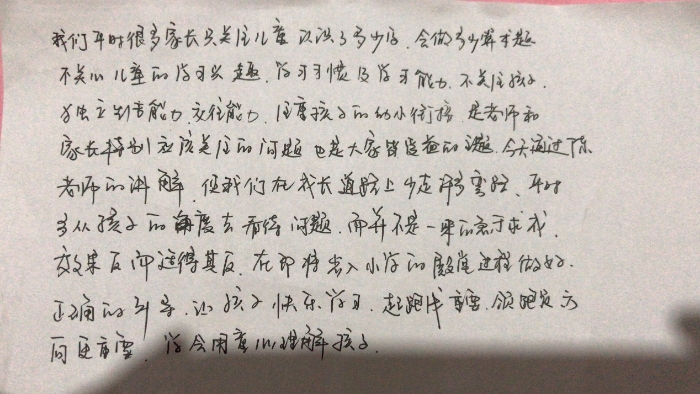 我们平时很多家长只关注儿童认识了多少字、会做多少算术题
不关心儿童的学习兴趣、学习习惯及学习能力、不关注孩子
独立生活能力、交往能力、注重孩子的幼小衔接是老师和
家长特别应该关注的问题也是大家皆受益的课题、今天通过了陈
老师的讲解、使我们在成长道路上少走许多弯路、平时
多从孩子的角度去看待问题、而并不是一味的急于求成、
效果反而适得其反、在即将步入小学的殿堂过程做好
正确的引导、让孩子快乐学习、起跑线重要、领跑方
向更重要、学会用童心理解孩子.